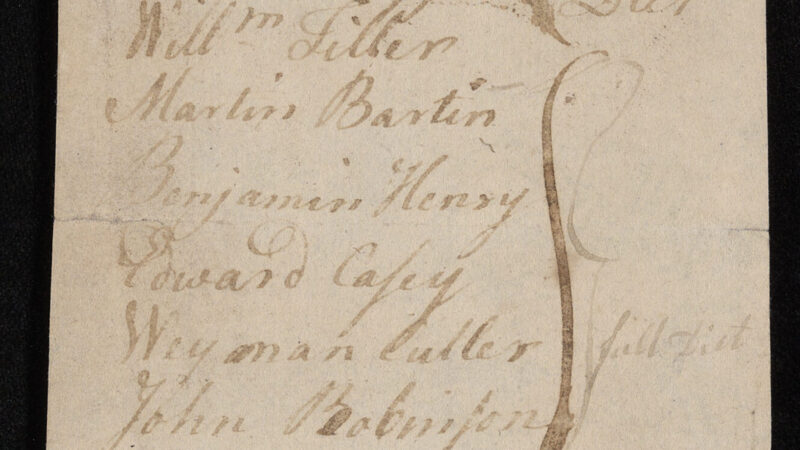 Diet
Will^m Filler
Martin Bartin
Benjamin Henry
Edward Casey
Weyman Culler
John Robinson
full Diet